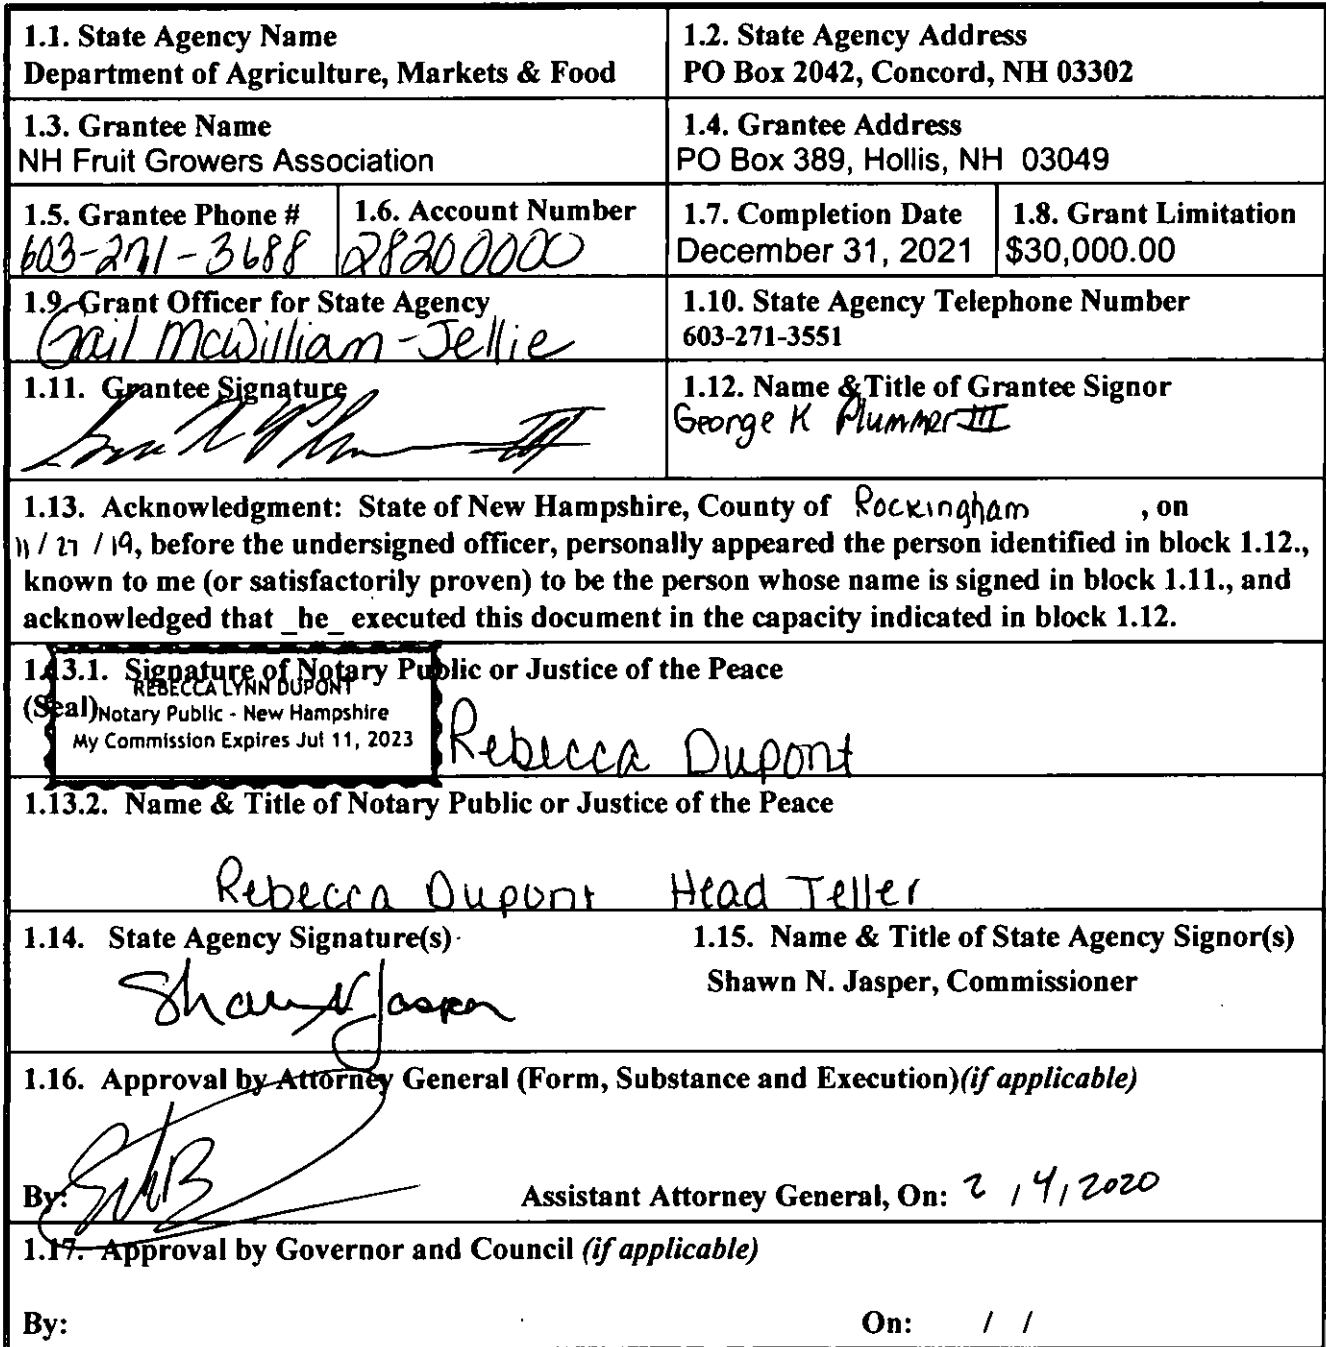 1.1. State Agency Name
Department of Agriculture, Markets & Food
1.2. State Agency Address
PO Box 2042, Concord, NH 03302
1.3. Grantee Name
NH Fruit Growers Association
1.4. Grantee Address
PO Box 389, Hollis, NH 03049
1.5. Grantee Phone #
603-271-3688
1.6. Account Number
28200000
1.7. Completion Date
December 31, 2021
1.8. Grant Limitation
$30,000.00
1.9. Grant Officer for State Agency
Gail McWilliam-Jellie
1.10. State Agency Telephone Number
603-271-3551
1.11. Grantee Signature
1.12. Name & Title of Grantee Signor
George K Plummer III
1.13. Acknowledgment: State of New Hampshire, County of Rockingham , on
11 / 27 / 19, before the undersigned officer, personally appeared the person identified in block 1.12.,
known to me (or satisfactorily proven) to be the person whose name is signed in block 1.11., and
acknowledged that _he_ executed this document in the capacity indicated in block 1.12.
1.13.1. Signature of Notary Public or Justice of the Peace
(Seal)
REBECCA LYNN DUPONT
Notary Public - New Hampshire
My Commission Expires Jul 11, 2023
Rebecca Dupont
1.13.2. Name & Title of Notary Public or Justice of the Peace
Rebecca Dupont Head Teller
1.14. State Agency Signature(s)
Shawn N Jasper
1.15. Name & Title of State Agency Signor(s)
Shawn N. Jasper, Commissioner
1.16. Approval by Attorney General (Form, Substance and Execution)(if applicable)
By: Assistant Attorney General, On: 2 / 4 / 2020
1.17. Approval by Governor and Council (if applicable)
By: On: / /